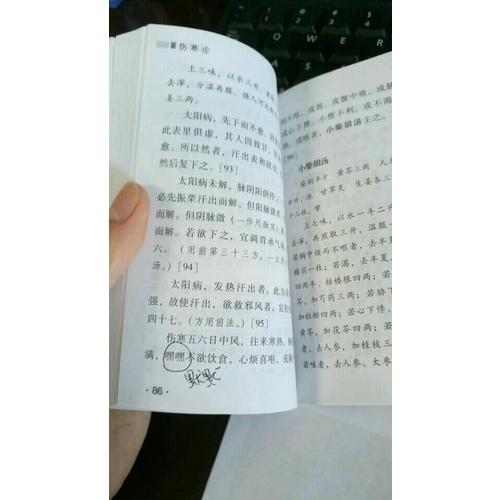 伤寒论
上三味，以水三升，
去滓，分温再服。强人可
姜三两。
太阳病，先下而不愈，因
此表里俱虚，其人因致冒，
愈。所以然者，汗出表和故也。
然后复下之。[93]
太阳病未解，脉阴阳俱停，
必先振栗汗出而解。但阳脉微
而解。但阴脉微（一作尺脉实）
而解。若欲下之，宜调胃承气
六。（用前第三十三方。一云用
汤。）[94]
太阳病，发热汗出者，此为
强，故使汗出，欲救邪风者，宜
四十七。（方用前法。）[95]
伤寒五六日中风，往来寒热，
满，嘿嘿不欲饮食，心烦喜呕，或
默默
·86·
不渴，
或渴，或腹中痛，或
或心下悸、小便不利，或不
或咳者，小柴胡汤主之。
[96]
小柴胡汤
柴胡半斤 黄芩三两 人
半斤，洗 甘草炙 生姜各三
十二枚，擘
上七味，以水一斗二升
滓，再煎取三升，温服一
若胸中烦而不呕者，去半夏
楼实一枚；若渴，去半夏
四两半、栝楼根四两；若
芩，加芍药三两；若胁下
加牡蛎四两；若心下悸、
黄芩，加茯苓四两；若
者，去人参，加桂枝三
若咳者，去人参、大枣